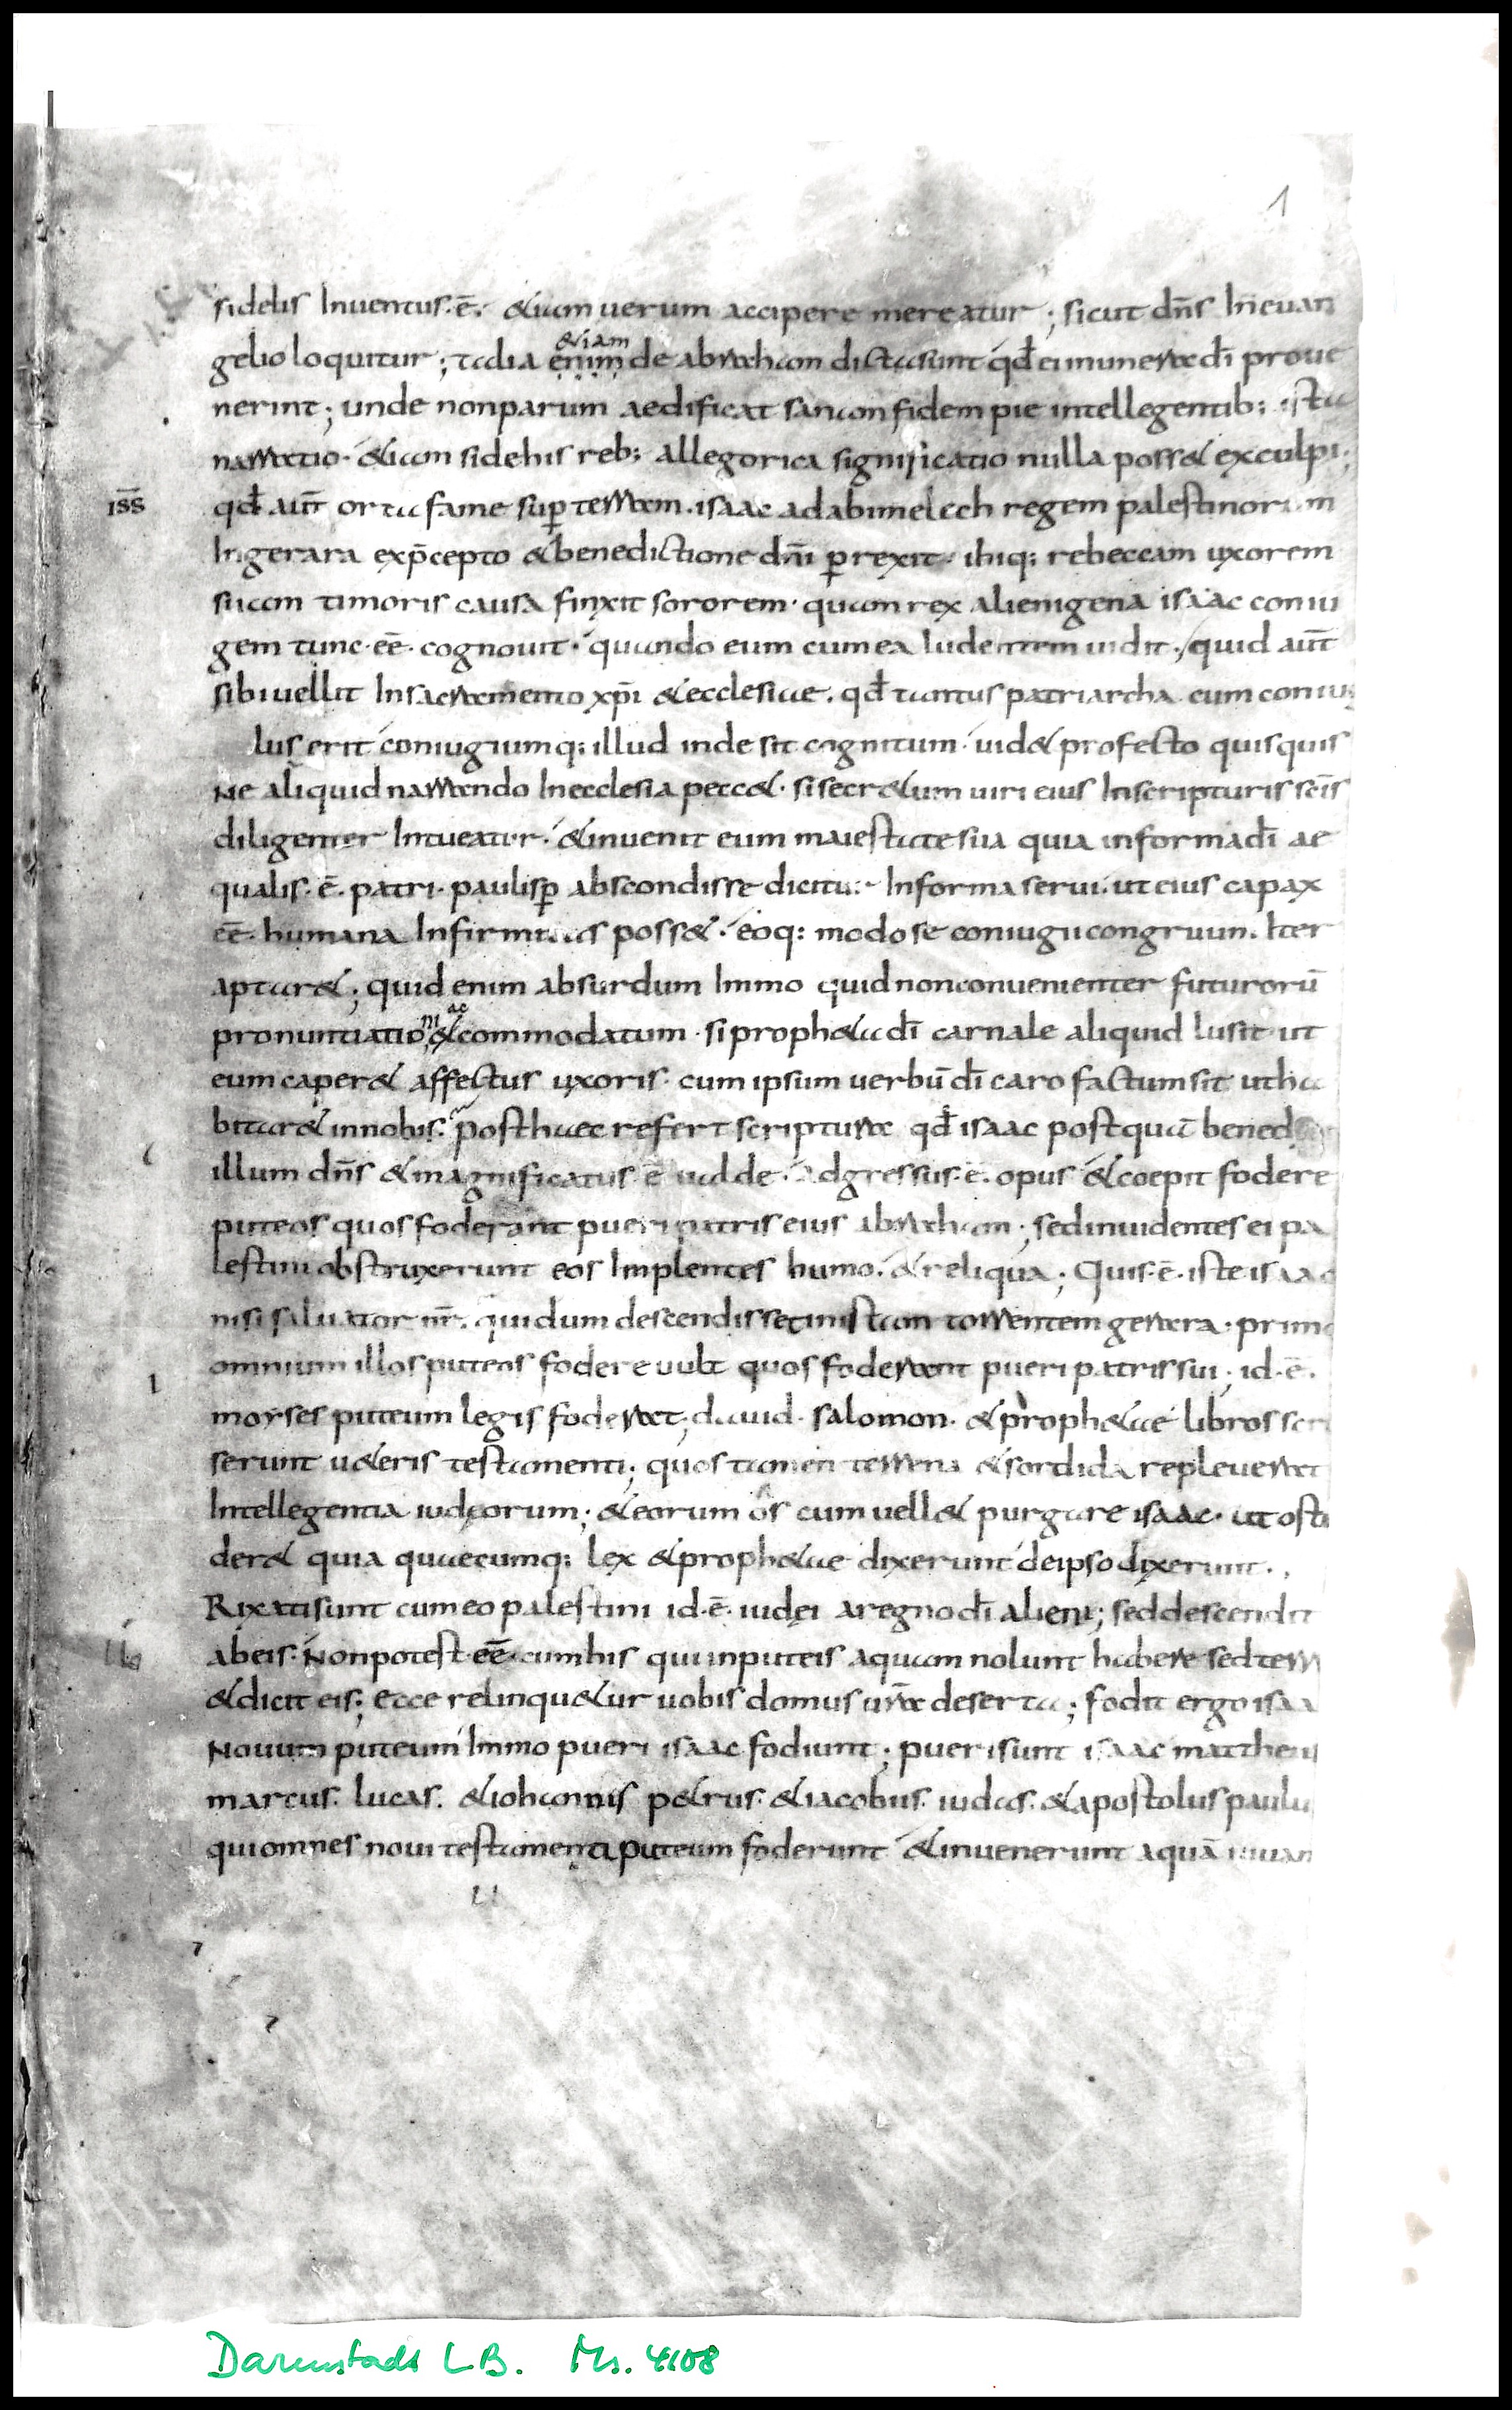 1
fidelis Inuentus·ē· &iam uerum accipere mereatur; sicut dn̄s In euan
&iam
gelio loquitur; talia enim de abraham dicta sunt qđ ei munera dī proue
nerint; unde non parum aedificat sanam fidem pie intellegentib; ista
narratio· &iam si de his reb; allegorica significatio nulla poss& exculpi;
iss̄
qđ aut̄ orta fame sup̱ terram· isaac ad abimelech regem palestinorum
In gerara ex p̄cepto & benedictione dn̄i p̱rexit· ibiq; rebeccam uxorem
suam timoris causa finxit sororem· quam rex alienigena isaac coniu
gem tunc·eē· cognouit· quando eum cum ea ludentem uidit· quid aut̄
sibi uellit In sacramento xp̄i & ecclesiae· qđ tantus patriarcha cum coniug
luserit coniugiumq; illud inde sit cognitum· uid& profecto quisquis
Ne aliquid narrando In ecclesia pecc&· si secr&um uiri eius In scripturis sc̄is
diligenter Intueatur· & inuenit eum maiestate sua qua in forma dī ae
qualis·ē· patri· paulisp̱ abscondisse dicitur In forma serui· ut eius capax
eē· humana Infirmitas poss&· eoq; modo se coniugii congruum· Iter
aptar&; quid enim absurdum Immo quid non conuenienter futurorū
ni ac
pronuntiatio & commodatum· si proph&a dī carnale aliquid lusit· ut
eum caper& affectus uxoris· cum ipsum uerbū dī caro factum sit ut ha
bitar& in nobis· post haec refert scriptura qđ isaac postquā bened
illum dn̄s & magnificatus·ē ualde· adgressus·ē· opus & coepit fodere
puteos quos foderant pueri patris eius abraham; sed inuidentes ei pa
lestini obstruxerunt eos Implentes humo· & reliqua; Quis·ē· iste isaac
nisi saluator nr̄· qui dum descendisset in istam torrentem gerara· primo
omnium illos puteos fodere uult quos foderant pueri patris sui; id·ē·
moyses puteum legis foderat; dauid· salomon· & proph&ae libros scri
serunt u&eris testamenti; quos tamen terrena & sordida repleuerat
Intellegentia iudęorum; & eorum os cum uell& purgare isaac· ut oste
der& quia quaecumq; lex & proph&ae dixerunt de ipso dixerunt·
Rixati sunt cum eo palestini id·ē· iudęi a regno dī alieni; sed descendit
ab eis· Non potest·eē· cum his qui in puteis aquam nolunt habere sed terr
& dicit eis; ecce relinqu&ur uobis domus ur̄a deserta; fodit ergo isaa
Nouum puteum Immo pueri isaac fodiunt; pueri sunt isaac mattheus
marcus· lucas· & iohannis p&rus· & iacobus· iudas· & apostolus paulu
qui omnes noui testamenti puteum foderunt & inuenerunt aquā uiuam
Darmstadt LB. Ms. 4108